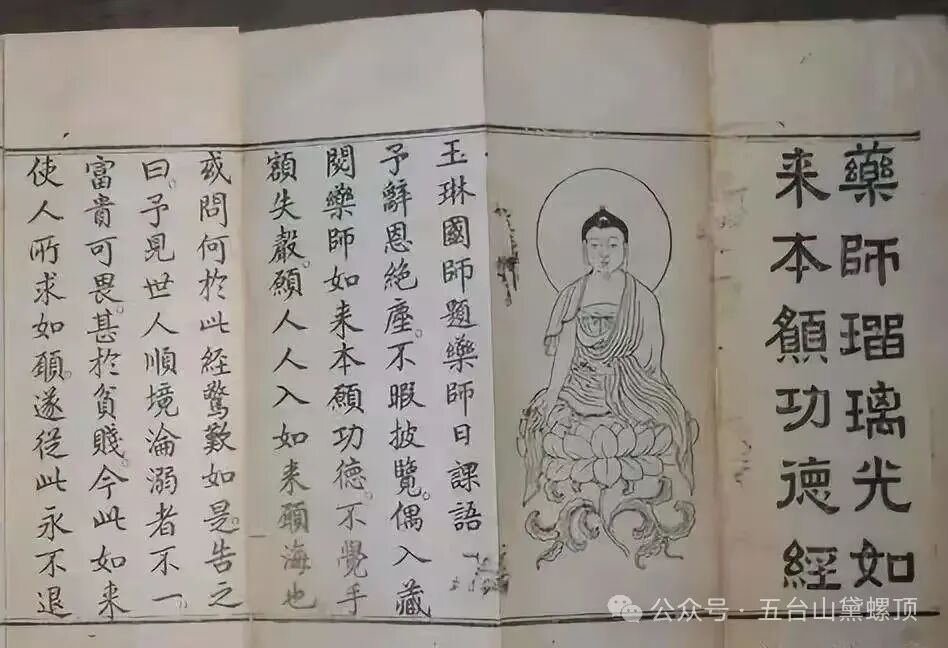 藥師瑠璃光如
来本願功德經
玉琳國師題藥師日課語
予辭恩絶塵。不暇披覽。偶入藏
閱藥師如来本願功德。不覺手
額失聲。願人人入如来願海也
或問何於此經驚歎如是。告之
曰。予見世人順境淪溺者不一。
富貴可畏。甚於貧賤。今此如来
使人所求如願。遂從此永不退
公众号·五台山黛螺顶